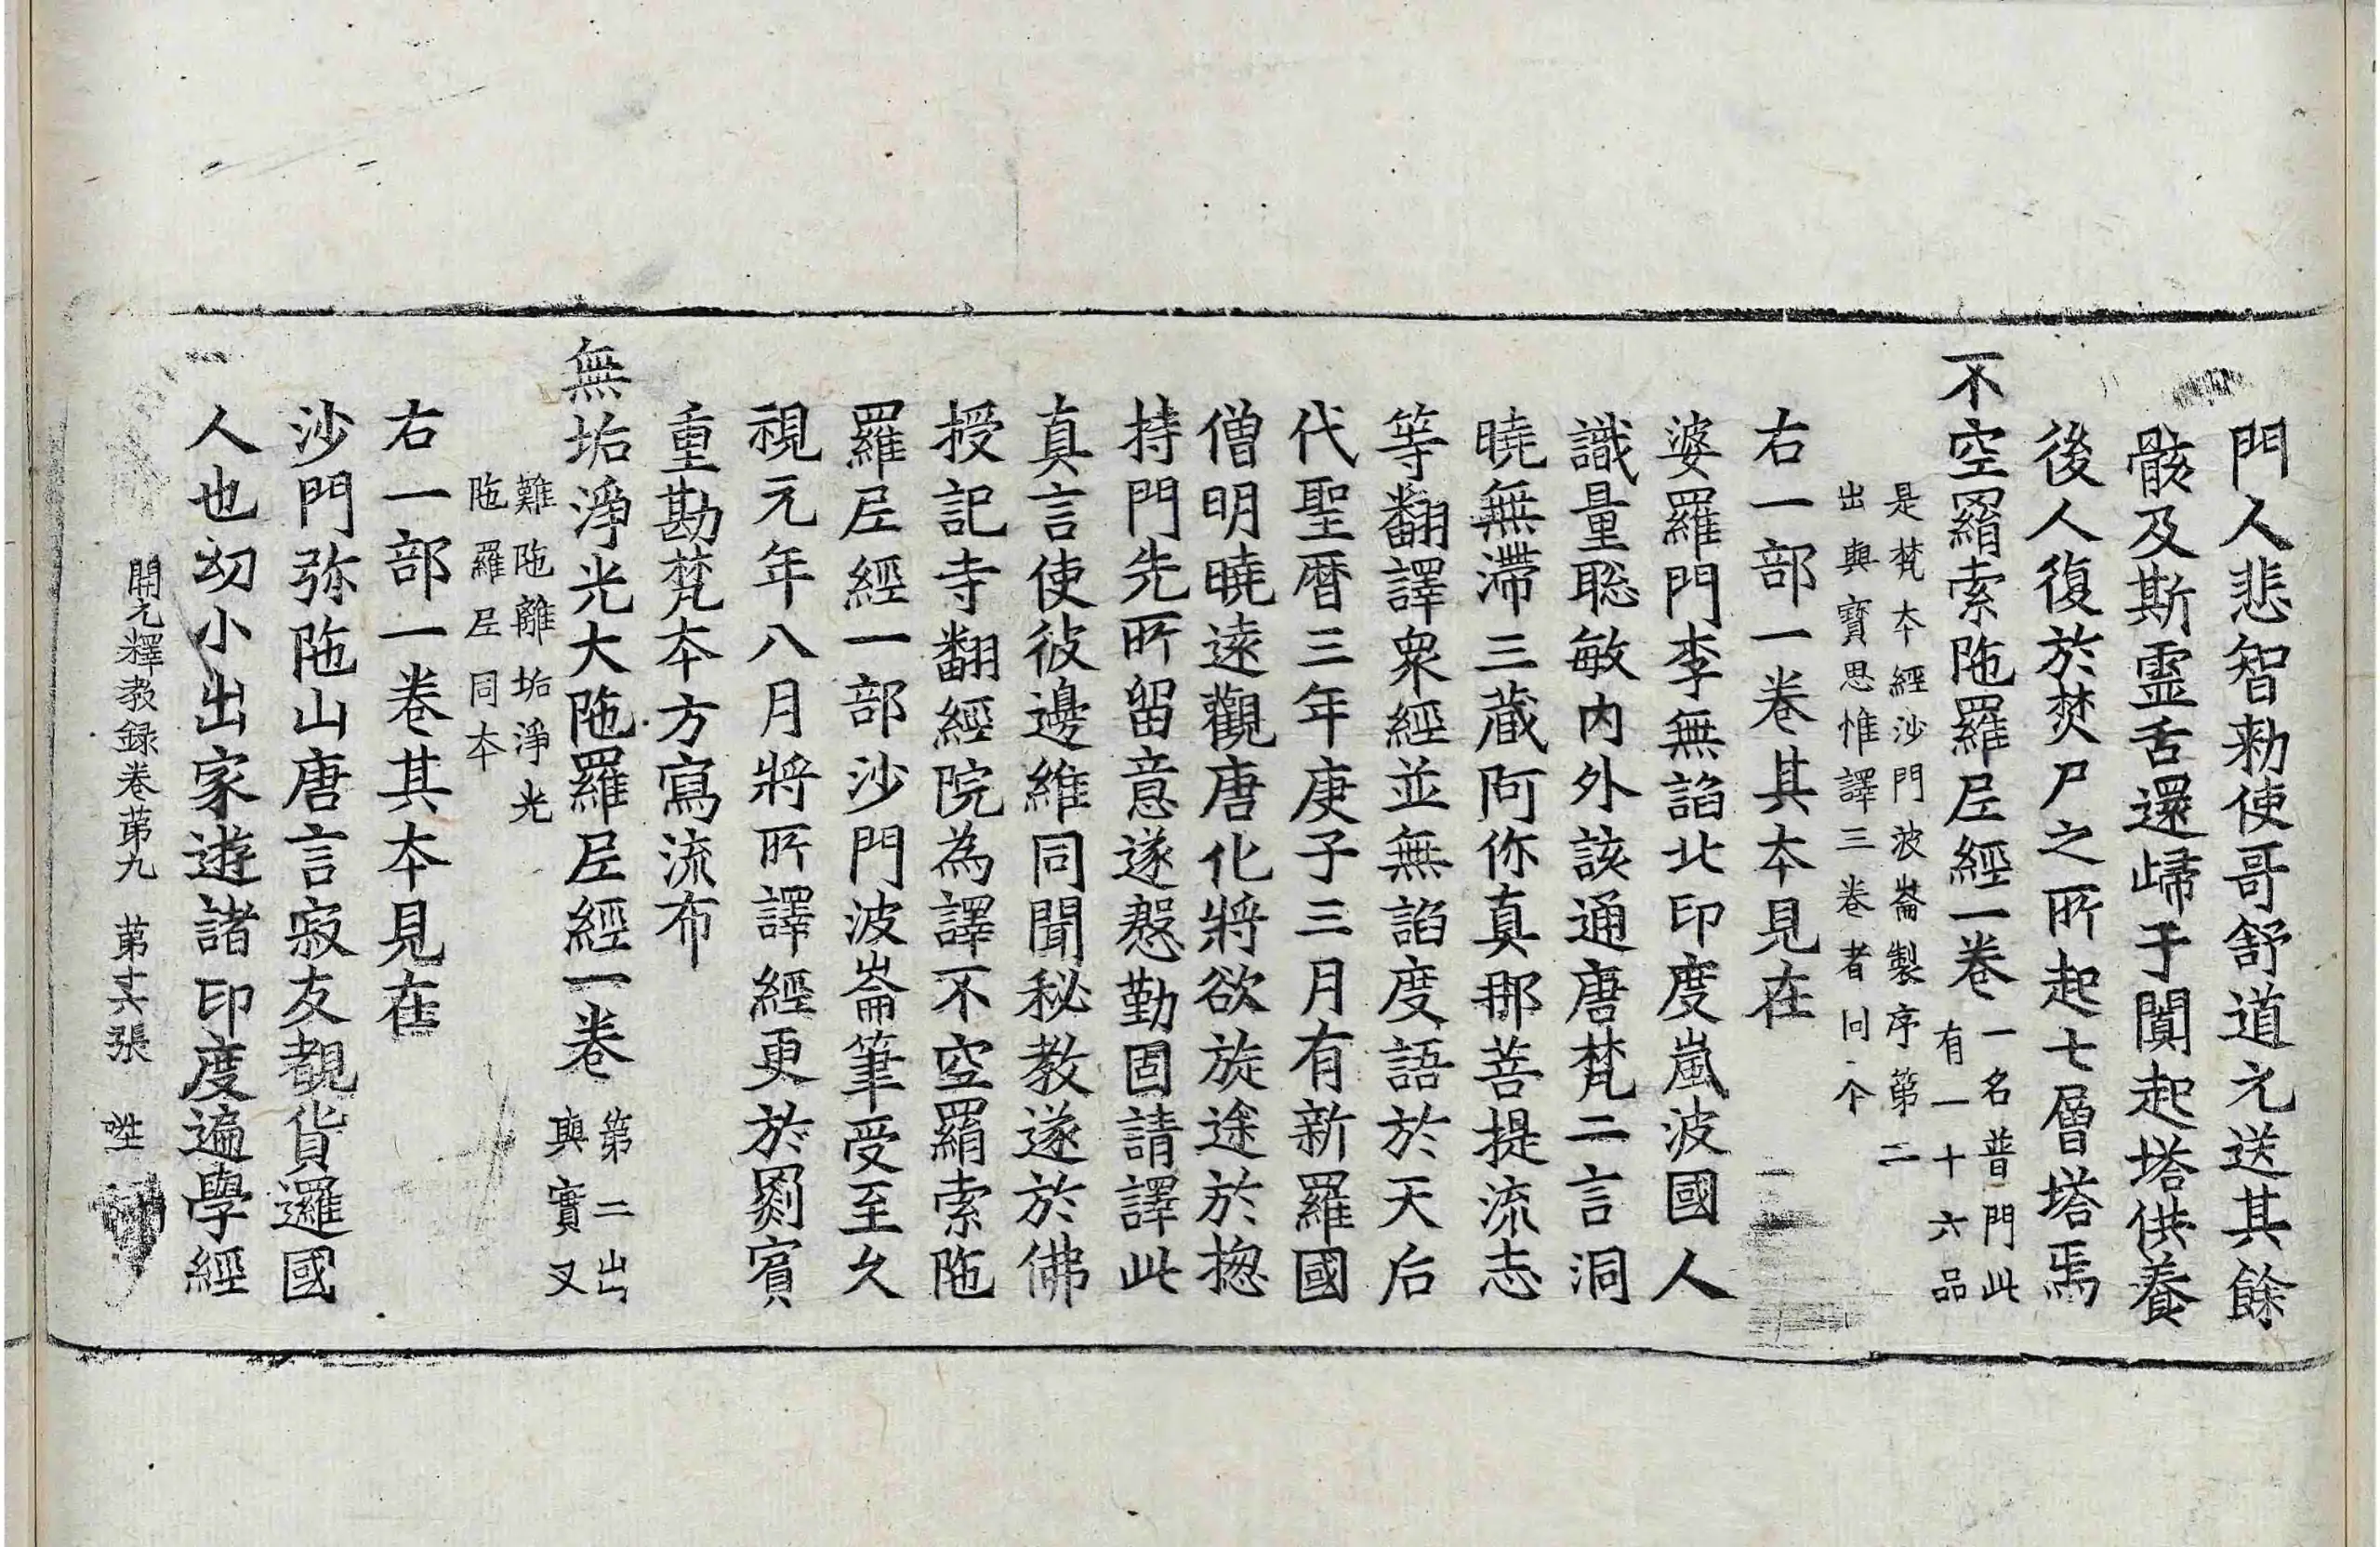 門人悲智勑使哥舒道元送其餘
骸及斯靈舌還歸于闐起塔供養
後人復於焚尸之所起七層塔焉
不空羂索陁羅尼經一卷
一名普門此
有一十六品
是梵本經沙門波崙製序第二
出與寶思惟譯三卷者同本
右一部一卷其本見在
婆羅門李無諂北印度嵐波國人
識量聡敏內外該通唐梵二言洞
曉無滯三藏阿你真那菩提流志
等翻譯衆經並無諂度語於天后
代聖曆三年庚子三月有新羅國
僧明曉遠觀唐化將欲旋途於揔
持門先所留意遂慇勤固請譯此
真言使彼邊維同聞秘教遂於佛
授記寺翻經院為譯不空羂索陁
羅尼經一部沙門波崙筆受至久
視元年八月將所譯經更於罽賓
重勘梵本方寫流布
無垢淨光大陁羅尼經一卷
第二出
與實叉
難陁離垢淨光
陁羅尼同本
右一部一卷其本見在
沙門弥陁山唐言寂友覩貨邏國
人也幼小出家遊諸印度遍學經
開元釋教録卷苐九 苐十六張